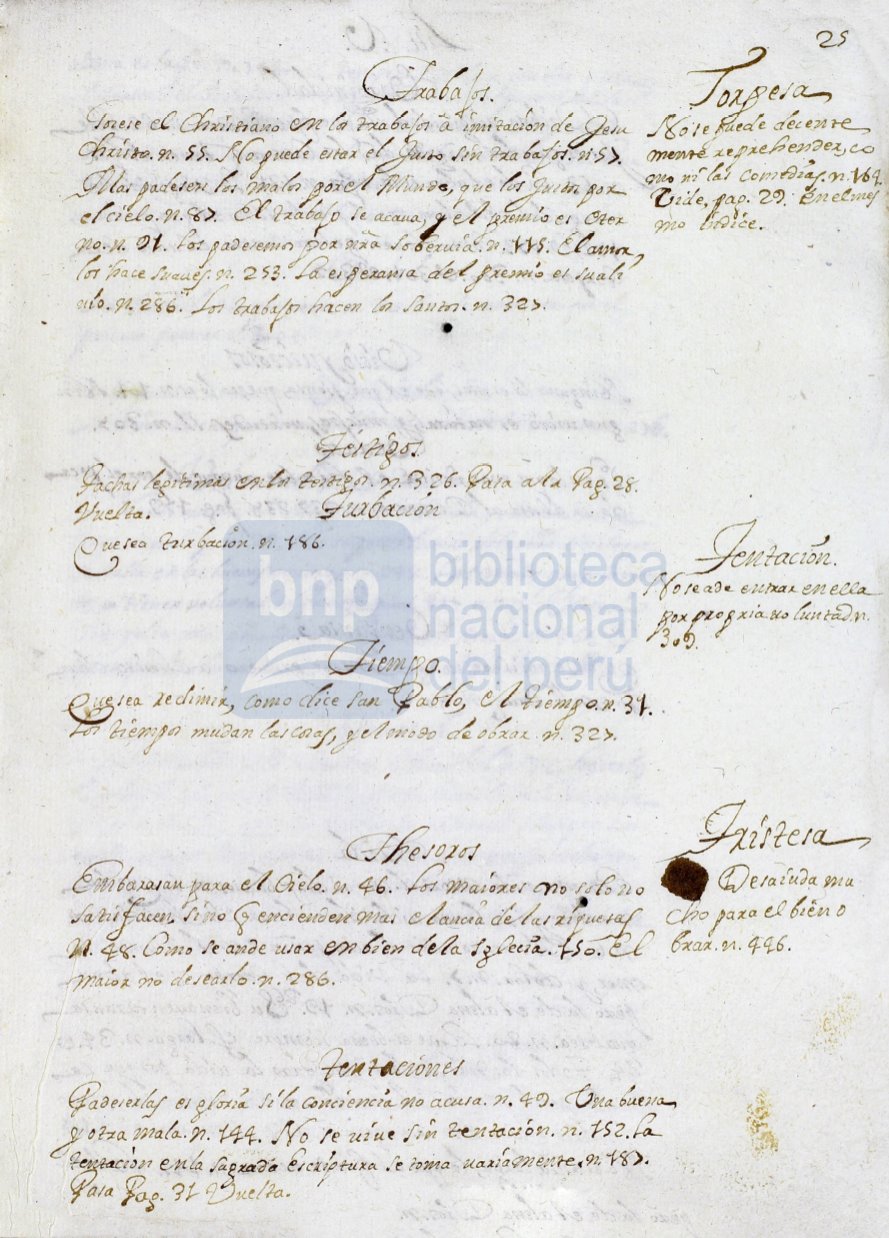 25
Trabajos.
el Christiano en los trabajos â imitación de Jesu
Christo. n. 55. No puede estar el Justo sin trabajos. n. 57.
Mas padesen los malos por el Mundo, que los Justos por
el cielo. n. 87. El trabajo se acava, y el premio es eter
no. n. 91. Los padesemos por nrã sobervia. n. 115. El amor,
los hace suaves. n. 253. La esperansa del premio es su ali
vio. n. 286. Los trabajos hacen los Santos. n. 327.
Torpesa
No se puede decente
mente reprehender, co
mo ni las comedias. n. 164.
Vide, pag. 29. en el mes
mo indice.
Testigos
Tachas legitimas en los testigos. n. 326. Pasa a la Pag. 28.
Vuelta.
Turbación
Que sea turbación. n. 186.
Tentación.
No se ade entrar en ella
por propria voluntad. n.
309.
Tiempo.
Que sea redimir, como dice san Pablo, el tiempo. n. 31.
Los tiempos mudan las cosas, y el modo de obrar. n. 327.
Thesoros
Embarasan para el Cielo. n. 46. Los maiores no solo no
satisfacen, sino q encienden mas el ancia de las riquesas
n. 48. Como se ande usar en bien de la Iglecia. 150. El
maior no desearlo. n. 286.
Tristesa
Desaiuda mu
cho para el bien o
brar. n. 446.
Tentaciones
Padeserlas es gloria si la conciencia no acusa. n. 49. Una buena
y otra mala. n. 144. No se vive sin tentación. n. 152. La
tentación en la sagrada escriptura se toma variamente. n. 187.
Pasa Pag. 31 Vuelta.
bnp
biblioteca
nacional
del perú